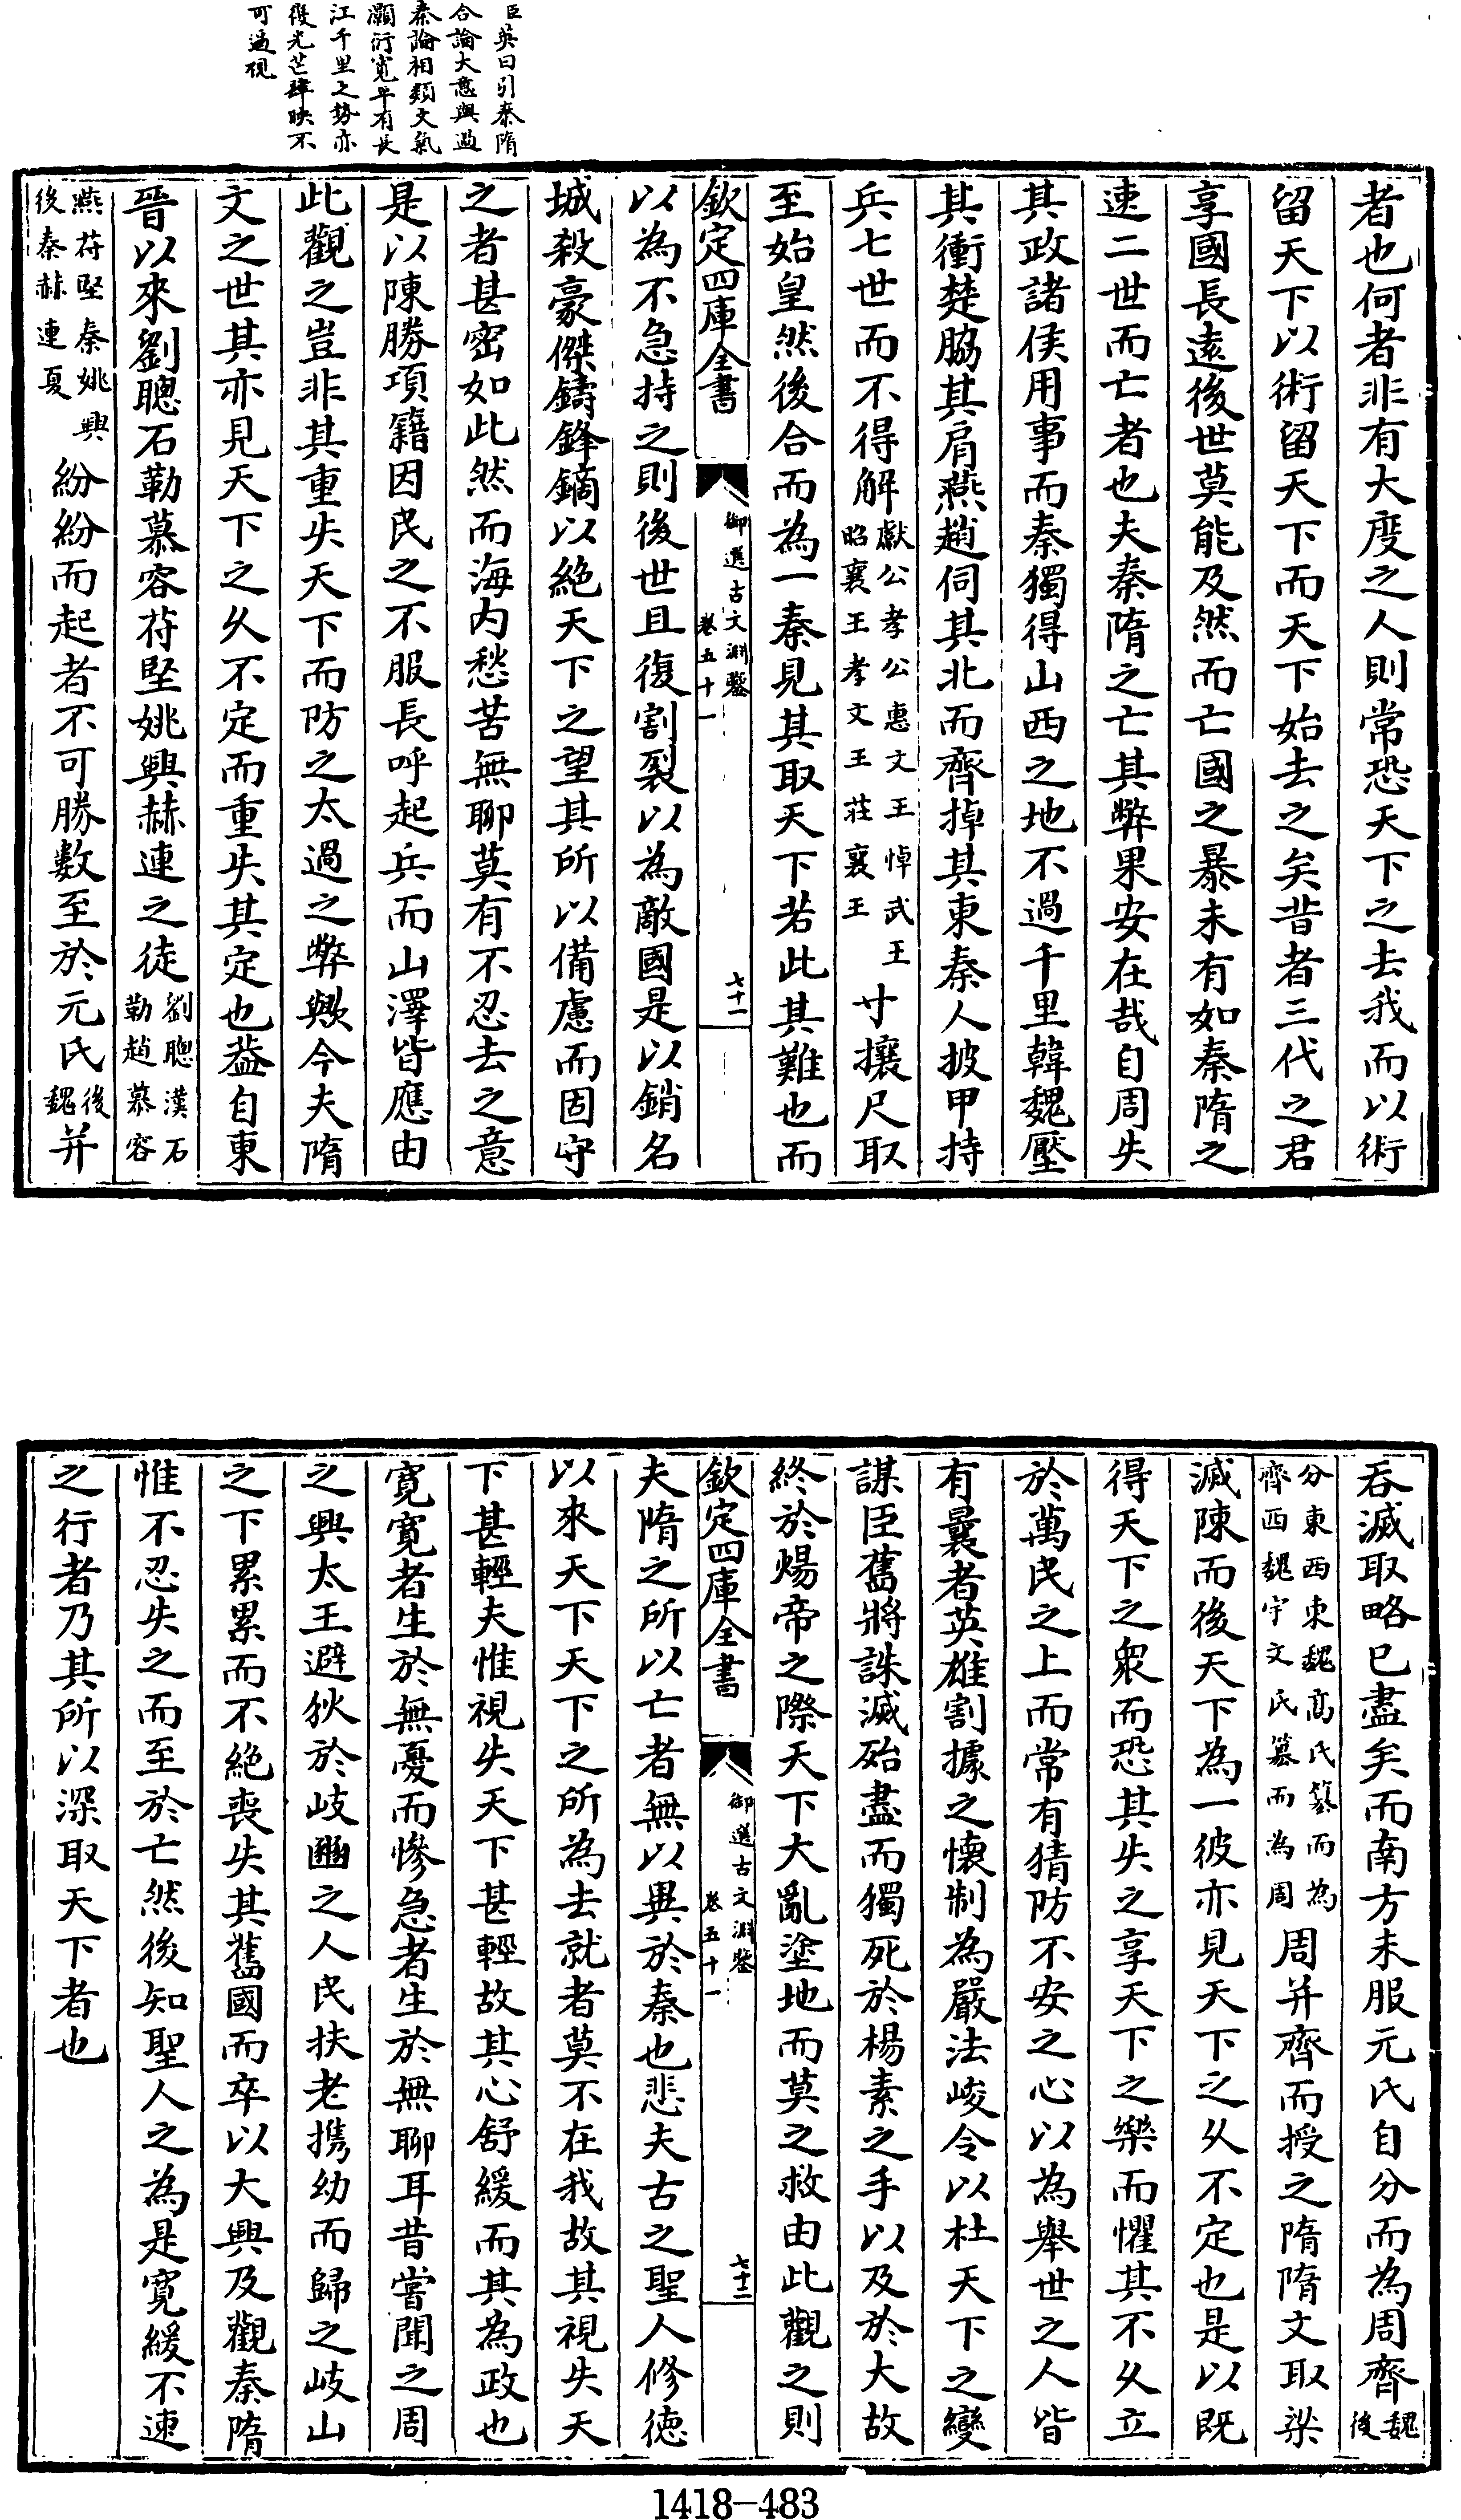 臣英曰引秦隋
合論大意與過
秦論相類文氣
灝衍寬平有長
江千里之勢亦
復光芒肆映不
可逼視
者也何者非有大度之人則常恐天下之去我而以術
留天下以術留天下而天下始去之矣昔者三代之君
享國長遠後世莫能及然而亡國之暴未有如秦隋之
速二世而亡者也夫秦隋之亡其弊果安在哉自周失
其政諸侯用事而秦獨得山西之地不過千里韓魏壓
其衝楚脇其肩燕趙伺其北而齊掉其東秦人披甲持
兵七世而不得解獻公孝公惠文王悼武王昭襄王孝文王莊襄王寸攘尺取
至始皇然後合而為一秦見其取天下若此其難也而
欽定四庫全書
御選古文淵鑒
卷五十一
七十一
以為不急持之則後世且復割裂以為敵國是以銷名
城殺豪傑鑄鋒鏑以絕天下之望其所以備慮而固守
之者甚密如此然而海内愁苦無聊莫有不忍去之意
是以陳勝項籍因民之不服長呼起兵而山澤皆應由
此觀之豈非其重失天下而防之太過之弊歟今夫隋
文之世其亦見天下之久不定而重失其定也葢自東
晉以來劉聰石勒慕容苻堅姚興赫連之徒劉聰漢石勒趙慕容
燕苻堅秦姚興後秦赫連夏紛紛而起者不可勝數至於元氏後魏并
吞滅取略已盡矣而南方未服元氏自分而為周齊魏後
分東西東魏高氏篡而為齊西魏宇文氏篡而為周周并齊而授之隋隋文取梁
滅陳而後天下為一彼亦見天下之久不定也是以既
得天下之衆而恐其失之享天下之樂而懼其不久立
於萬民之上而常有猜防不安之心以為舉世之人皆
有曩者英雄割據之懷制為嚴法峻令以杜天下之變
謀臣舊將誅滅殆盡而獨死於楊素之手以及於大故
終於煬帝之際天下大亂塗地而莫之救由此觀之則
欽定四庫全書
御選古文淵鑒
卷五十一
七十二
夫隋之所以亡者無以異於秦也悲夫古之聖人修德
以來天下天下之所為去就者莫不在我故其視失天
下甚輕夫惟視失天下甚輕故其心舒緩而其為政也
寬寬者生於無憂而慘急者生於無聊耳昔嘗聞之周
之興太王避狄於岐豳之人民扶老携幼而歸之岐山
之下累累而不絶喪失其舊國而卒以大興及觀秦隋
惟不忍失之而至於亡然後知聖人之為是寬緩不速
之行者乃其所以深取天下者也
1418-483